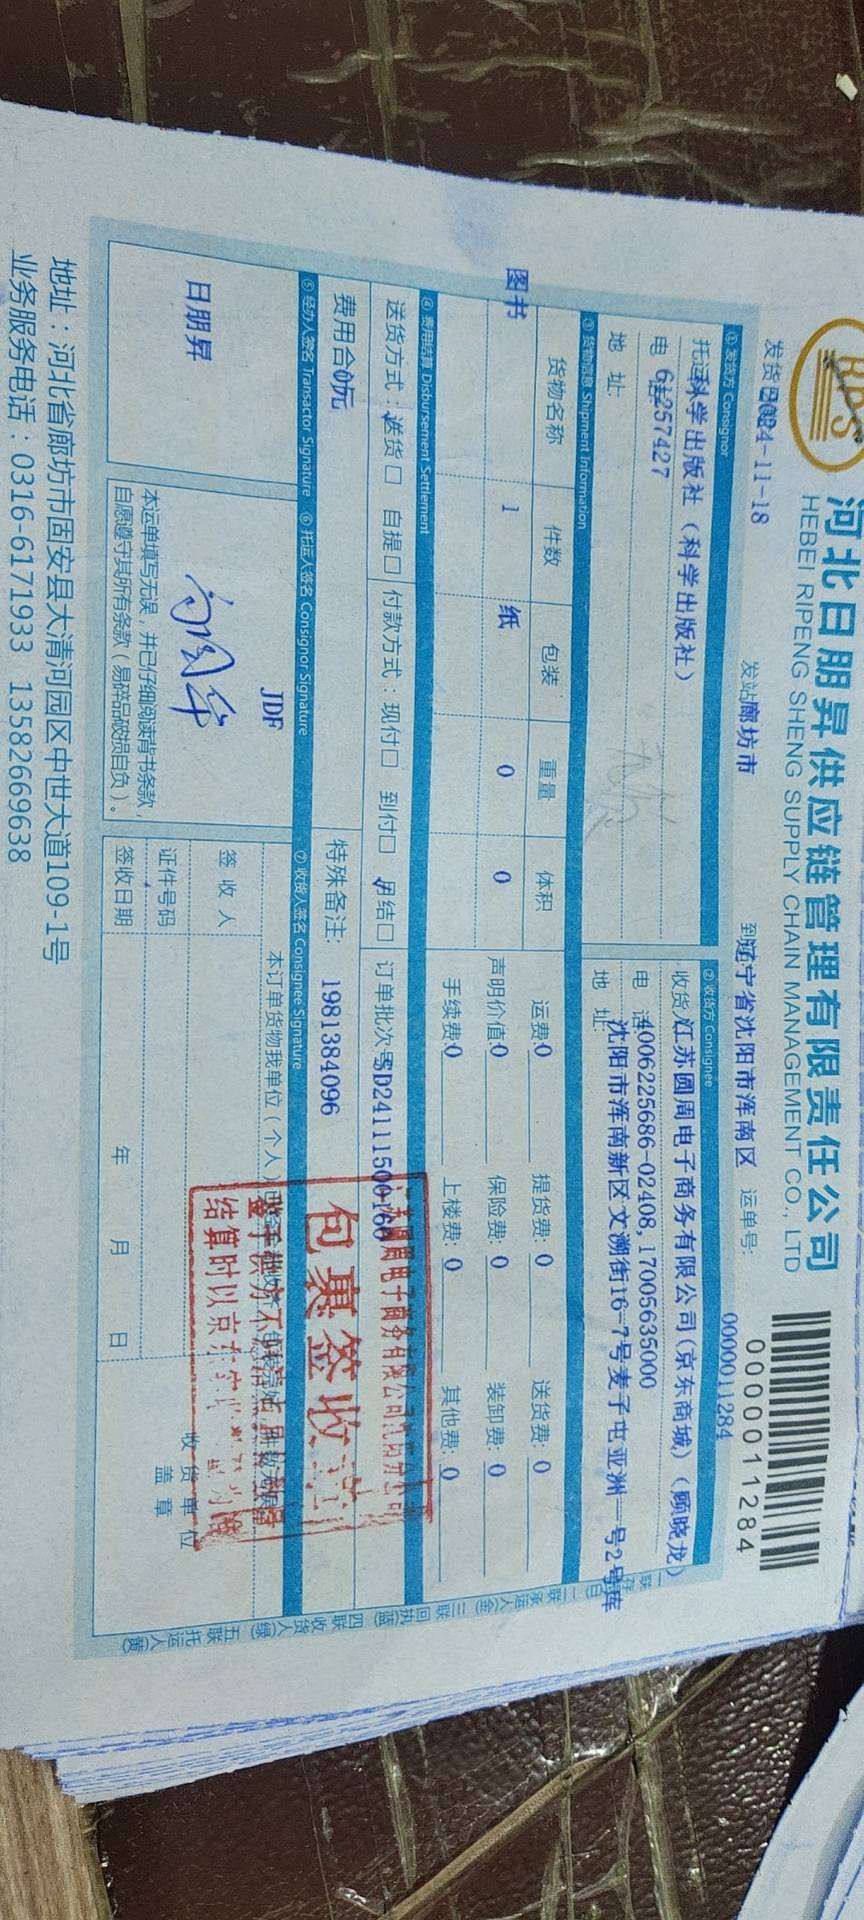 河北日朋昇供应链管理有限责任公司
HEBEI RIPENG SHENG SUPPLY CHAIN MANAGEMENT CO., LTD
0000011284
发货日期 2024-11-18 发站 廊坊市 到站 辽宁省沈阳市浑南区 运单号: 0000011284
① 发货方 Consignor
托运 科学出版社（科学出版社）
电 话 64257427
地 址
② 收货方 Consignee
收货 江苏圆周电子商务有限公司(京东商城)（顾晓龙）
电 话 4006225686-02408,17005635000
地 址 沈阳市浑南新区文溯街16-7号麦子屯亚洲一号2号库
③ 货物信息 Shipment Information
货物名称 件数 包装 重量 体积
图书 1 纸 0 0
运费:0 提货费:0 送货费:0
声明价值:0 保险费:0 装卸费:0
手续费:0 上楼费:0 其他费:0
④ 费用结算 Disbursement Settlement
送货方式：送货☐ 自提☐ 付款方式：现付☐ 到付☐ 月结☐ 订单批次号
费用合 0元
特殊备注: 1981384096
⑤ 经办人签名 Transactor Signature ⑥ 托运人签名 Consignor Signature ⑦ 收货人签名 Consignee Signature
日朋昇
JDF
本运单填写无误，并已仔细阅读背书条款，
自愿遵守其所有条款（易碎品破损自负）。
本订单货物我单位（个人）
签收人
证件号码
签收日期 年 月 日
收货单位
盖章
包裹签收
结算时以京东
一联 存 二联承运人 三联 回执(蓝) 四联 收货人(绿) 五联 托运人(黄)
地址：河北省廊坊市固安县大清河园区中世大道109-1号
业务服务电话：0316-6171933 13582669638